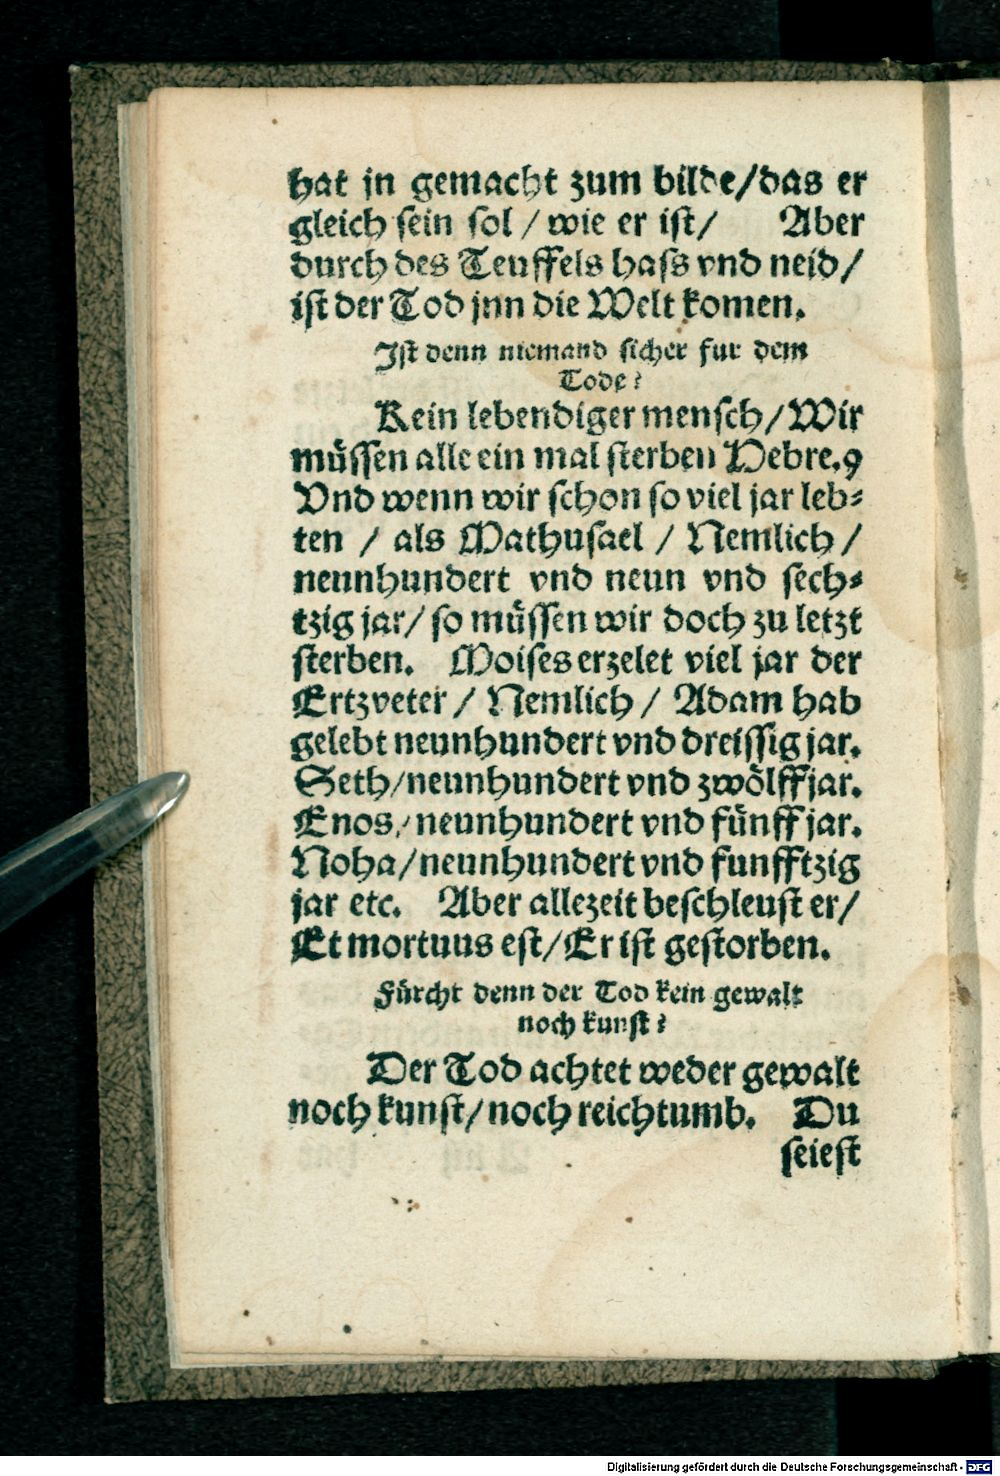 hat jn gemacht zum bilde/das er
gleich sein sol / wie er ist/ Aber
durch des Teuffels hass vnd neid/
ist der Tod jnn die Welt komen.
Ist denn niemand sicher fur dem
Tode?
Kein lebendiger mensch/Wir
müssen alle ein mal sterben Hebre.9
Vnd wenn wir schon so viel jar leb⸗
ten / als Mathusael / Nemlich /
neunhundert vnd neun vnd sech⸗
tzig jar/ so müssen wir doch zu letzt
sterben. Moises erzelet viel jar der
Ertzveter / Nemlich / Adam hab
gelebt neunhundert vnd dreissig jar.
Seth/neunhundert vnd zwölff jar.
Enos/neunhundert vnd fünff jar.
Noha/neunhundert vnd funfftzig
jar etc. Aber allezeit beschleust er/
Et mortuus est/Er ist gestorben.
Fürcht denn der Tod kein gewalt
noch kunst?
Der Tod achtet weder gewalt
noch kunst/noch reichtumb. Du
seiest
Digitalisierung gefördert durch die Deutsche Forschungsgemeinschaft - DFG